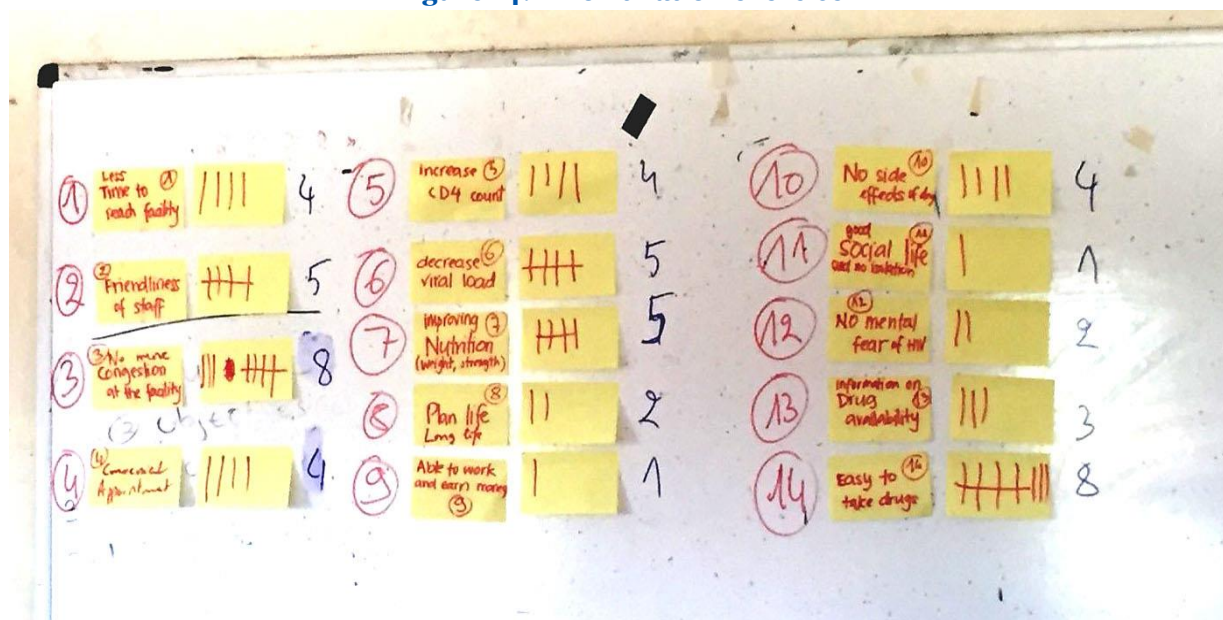 1
Less 1
Time to
reach facility
4
2
2 Friendliness
of staff
5
3
3 No more
Congestion
at the facility
8
4
4 Convenient
Appointment
4
5
increase 5
CD4 count
4
6
decrease 6
viral load
5
7
improving 7
Nutrition
(weight, strength)
5
8
8
Plan life
Long life
2
9
Able to work
and earn money
9
1
10
No side 10
effects of drug
4
11
good 11
SOCial life
and no isolation
1
12
12
NO mental
fear of HIV
2
13
information on
Drug 13
availability
3
14
Easy to 14
take drugs
8